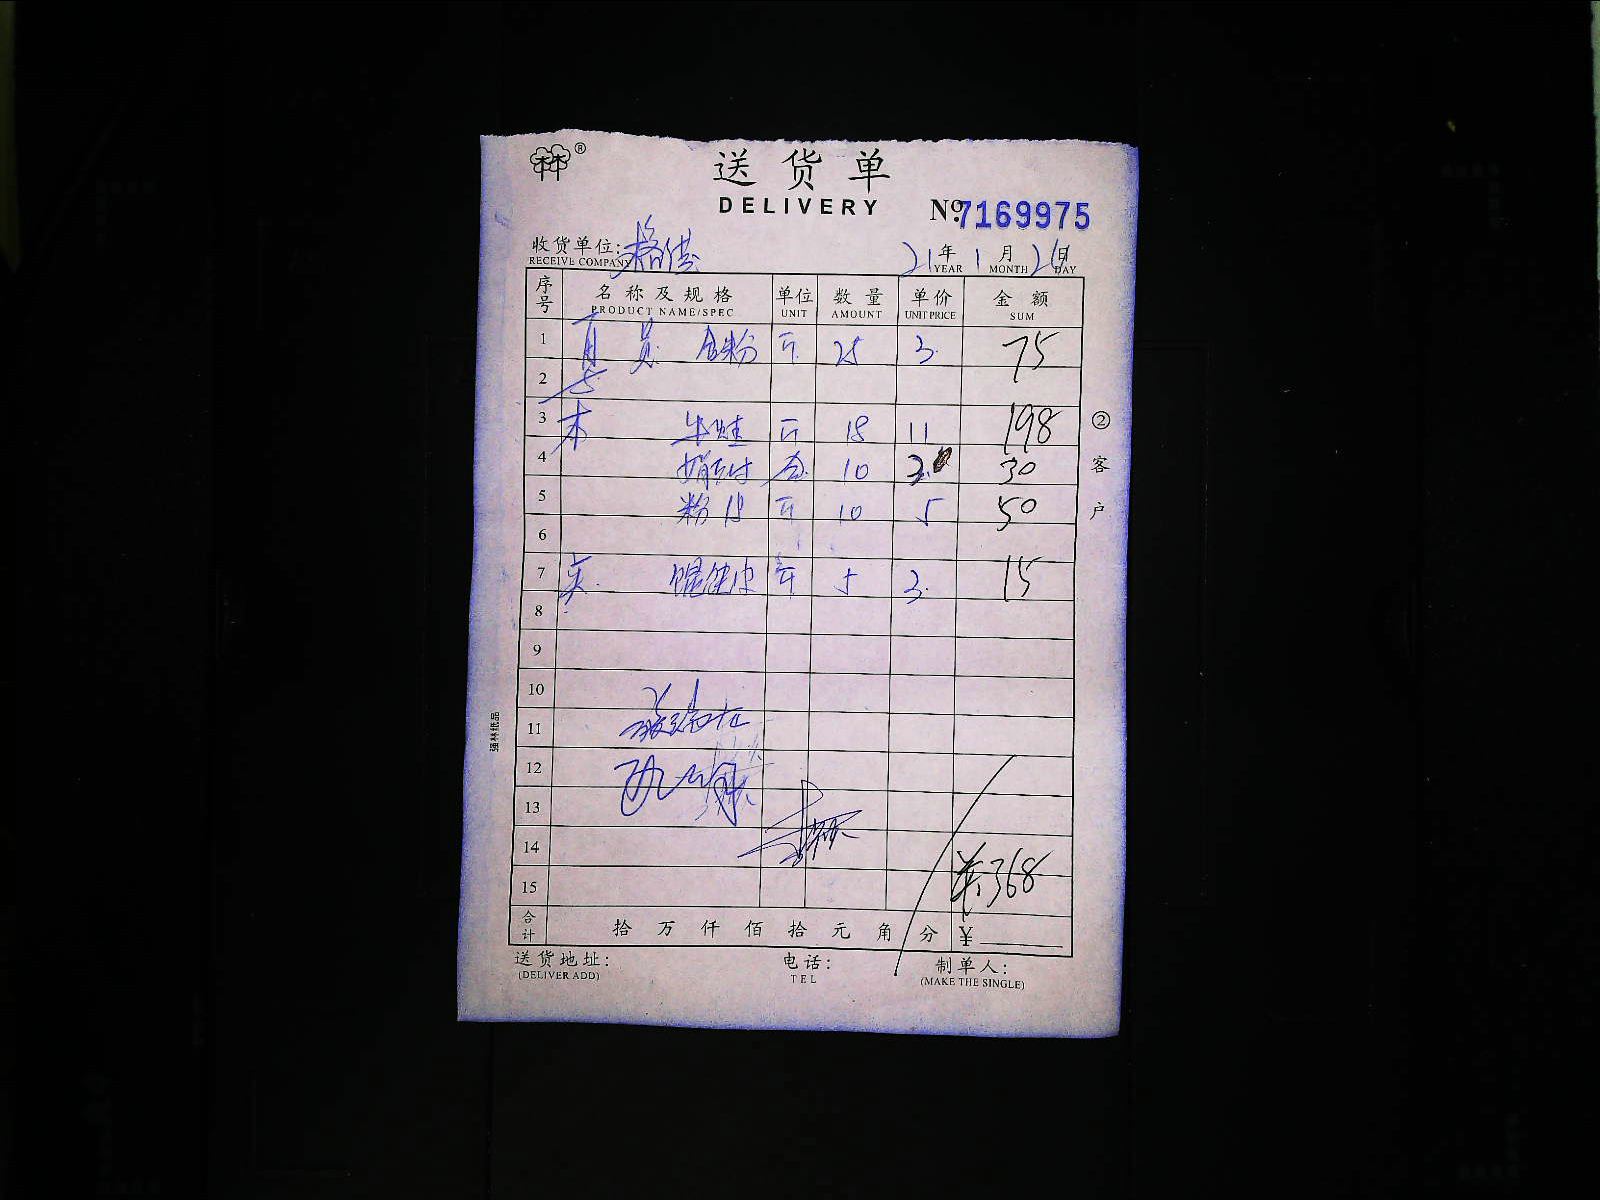 林林®
送货单
DELIVERY
№ 7169975
收货单位: 格佳 21年 1月 26日
RECEIVE COMPANY YEAR MONTH DAY
序号 名称及规格 单位 数量 单价 金额
PRODUCT NAME/SPEC UNIT AMOUNT UNIT PRICE SUM
1 员 粉 斤 25 3. 75
2
3 木 牛蛙 斤 18 11 198
4 10 3. 30
5 粉皮 斤 10 5 50
6
7 馄饨皮 斤 5 3. 15
8
9
10
11
12
13
14
15 368
合计 拾 万 仟 佰 拾 元 角 分 ¥
送货地址: 电话: 制单人:
(DELIVER ADD) TEL (MAKE THE SINGLE)
②客户
强林纸品